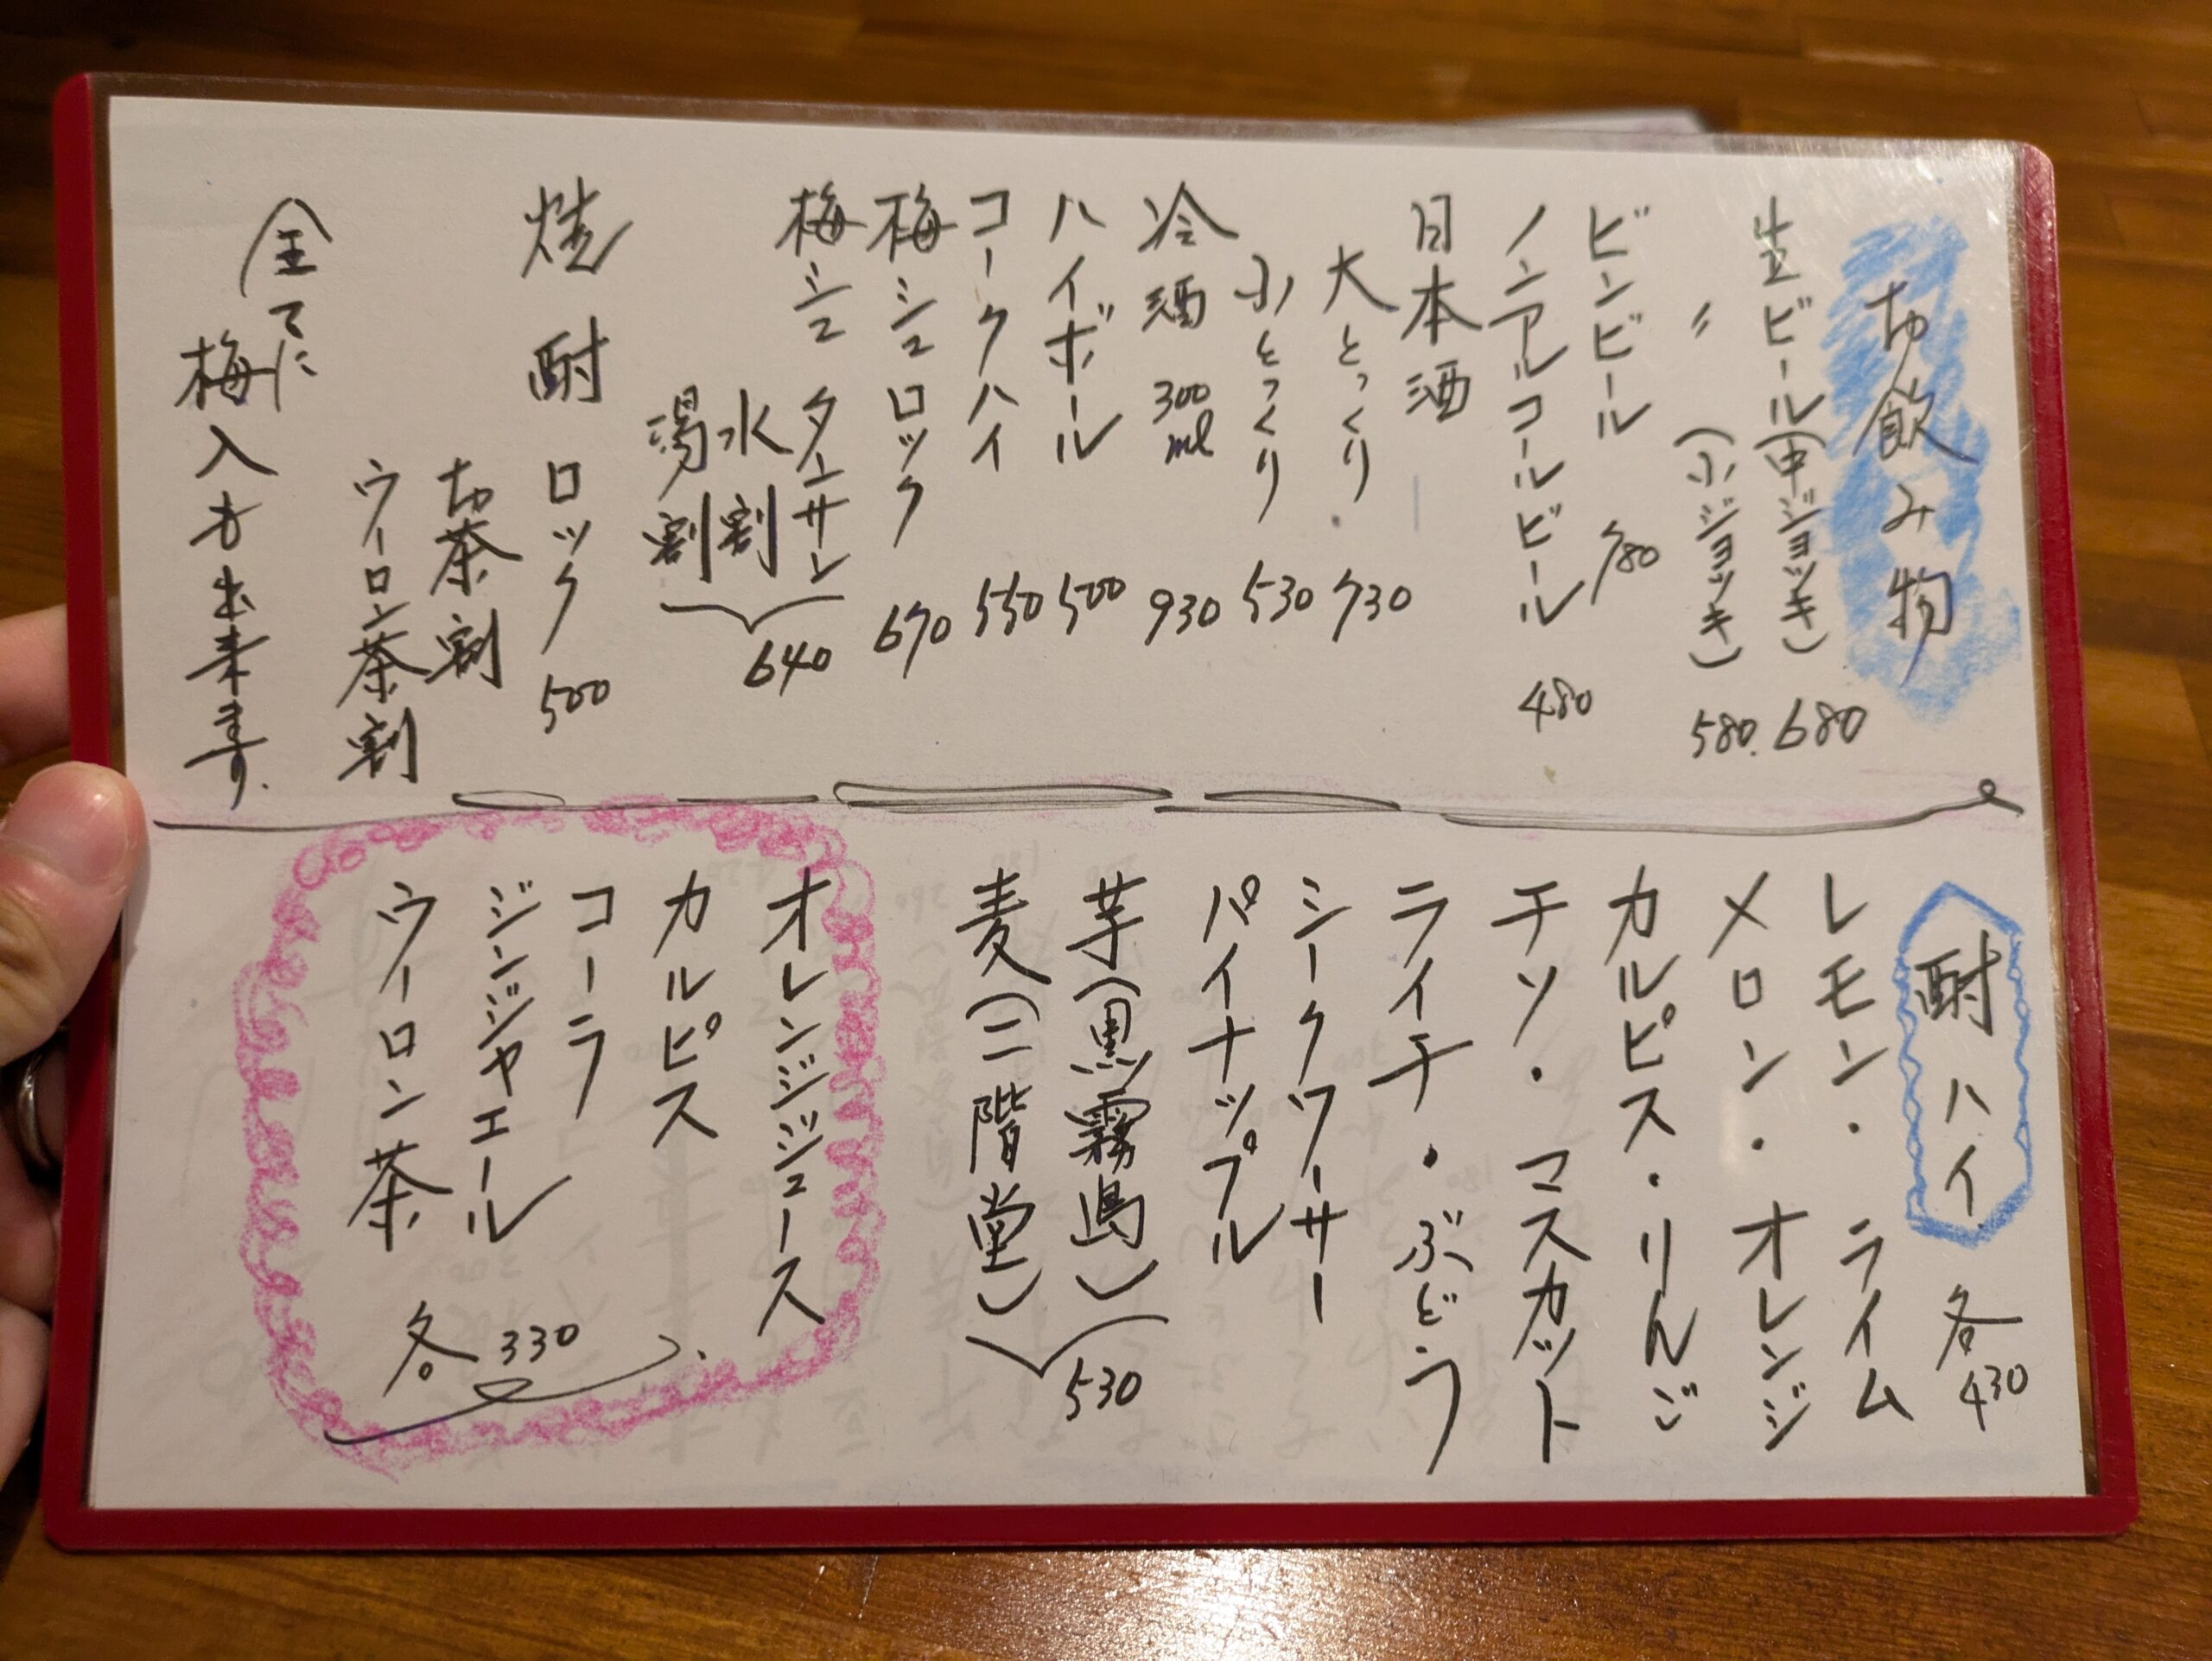 お飲み物
生ビール(中ジョッキ) 680
〃 (小ジョッキ) 580.
ビンビール 780
ノンアルコールビール 480
日本酒
大とっくり 730
小とっくり 530
冷酒 300ml 930
ハイボール 500
コークハイ 550
梅シュロック 670
梅シュ タンサン
水割
湯割
640
焼酎 ロック 500
お茶割
ウーロン茶割
全てに
梅入も出来ます.
酎ハイ 各430
レモン・ライム
メロン・オレンジ
カルピス・りんご
チソ・マスカット
ライチ・ぶどう
シークワーサー
パイナップル
芋(黒霧島)
麦(二階堂)
530
オレンジジュース
カルピス
コーラ
ジンジャエール
ウーロン茶
各330